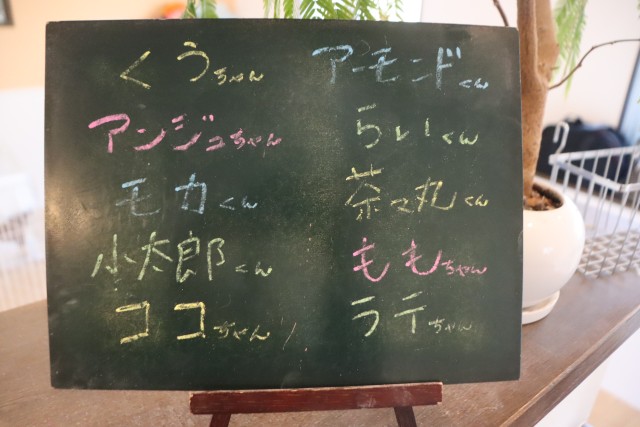 くぅちゃん アーモンドくん
アンジュちゃん らいくん
モカくん 茶々丸くん
小太郎くん ももちゃん
ココちゃん ラテちゃん